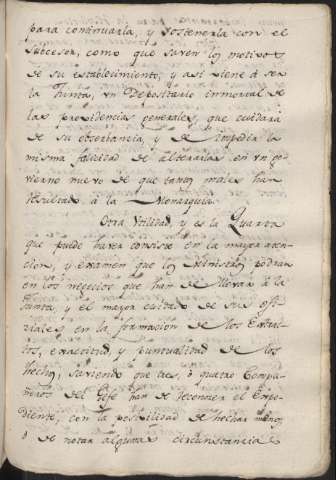 para continuarla, y sostenerla con el
subcesor, como que saven los motivos
de su establecimiento, y asi viene á ser
la Junta, un Depositario inmortal de
las providencias generales, que cuidará
de su observancia, y de impedir la
misma facilidad de alterarlas en un go-
vierno nuevo de que tantos males han
resultado á la Monarquia.
Otra Utilidad, y es la Quarta
que puede haver consiste en la mayor aten-
cion, y examen que los Ministros podran
en los negocios que han de llevar á la
Junta, y el mayor cuidado de sus ofi-
ziales en la formacion de los Extrac-
tos, exactitud, y puntualidad de los
hechos, saviendo que tres, ó quatro Compa-
ñeros del Gefe han de reconocer el Expe-
diente, con la posibilidad de hechar menos,
ó de notar alguna circunstancia